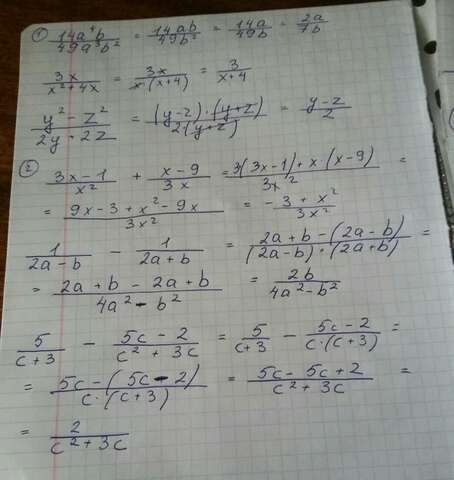 1) 14a⁴b/49a³b² = 14ab/49b² = 14a/49b = 2a/7b
3x/x²+4x = 3x/x(x+4) = 3/x+4
y²-z²/2y·2z = (y-z)·(y+z)/2(y+z) = y-z/2
2) 3x-1/x² + x-9/3x = 3(3x-1)+x·(x-9)/3x² =
= 9x-3+x²-9x/3x² = -3+x²/3x²
1/2a-b - 1/2a+b = 2a+b-(2a-b)/(2a-b)·(2a+b) =
= 2a+b-2a+b/4a²-b² = 2b/4a²-b²
5/c+3 - 5c-2/c²+3c = 5/c+3 - 5c-2/c·(c+3) =
= 5c-(5c-2)/c·(c+3) = 5c-5c+2/c²+3c =
= 2/c²+3c